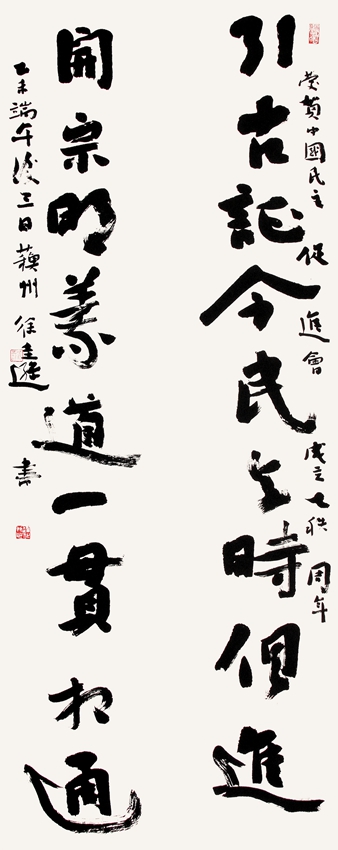 引古証今民与時俱進
賀中國民主促進會成立七秩周年
開宗明義道一貫相通
乙未端午後三日蘇州徐圭遜書